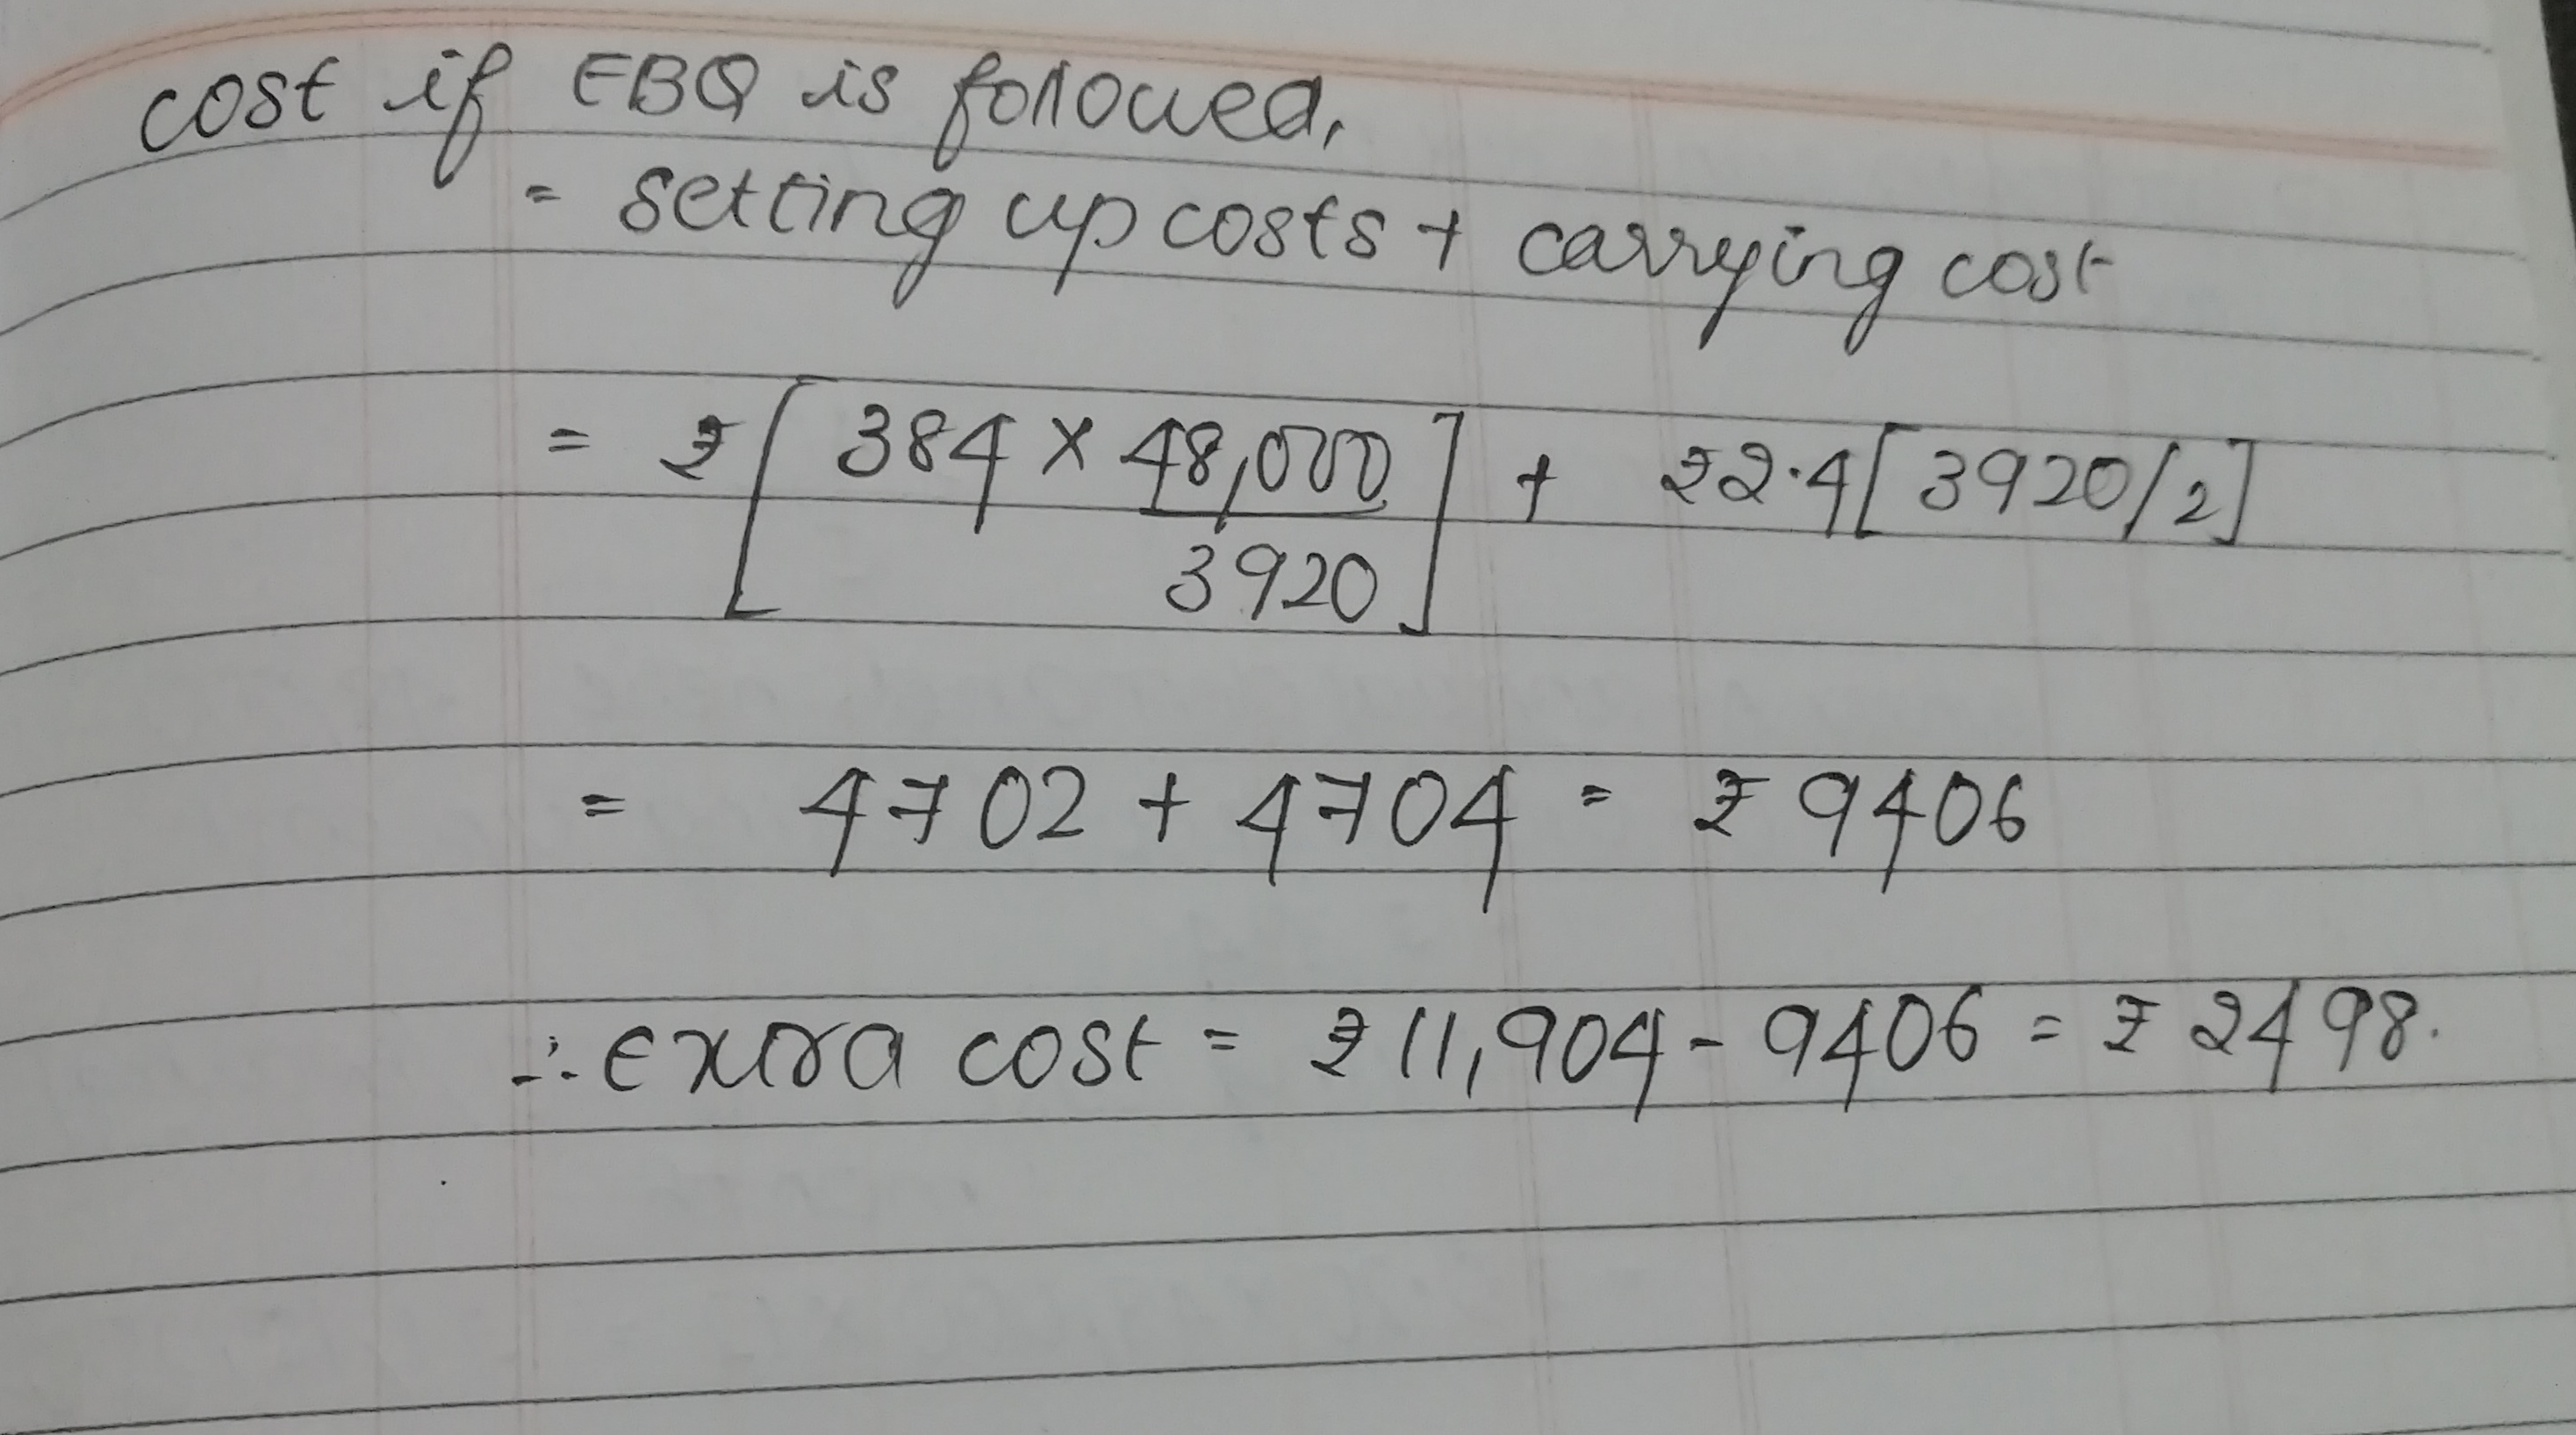 cost if EBQ is followed,
= setting up costs + carrying cost
= ₹ [ 384 × 48,000 / 3920 ] + ₹2.4 [ 3920/2 ]
= 4702 + 4704 = ₹ 9406
∴ extra cost = ₹ 11,904 - 9406 = ₹ 2498.